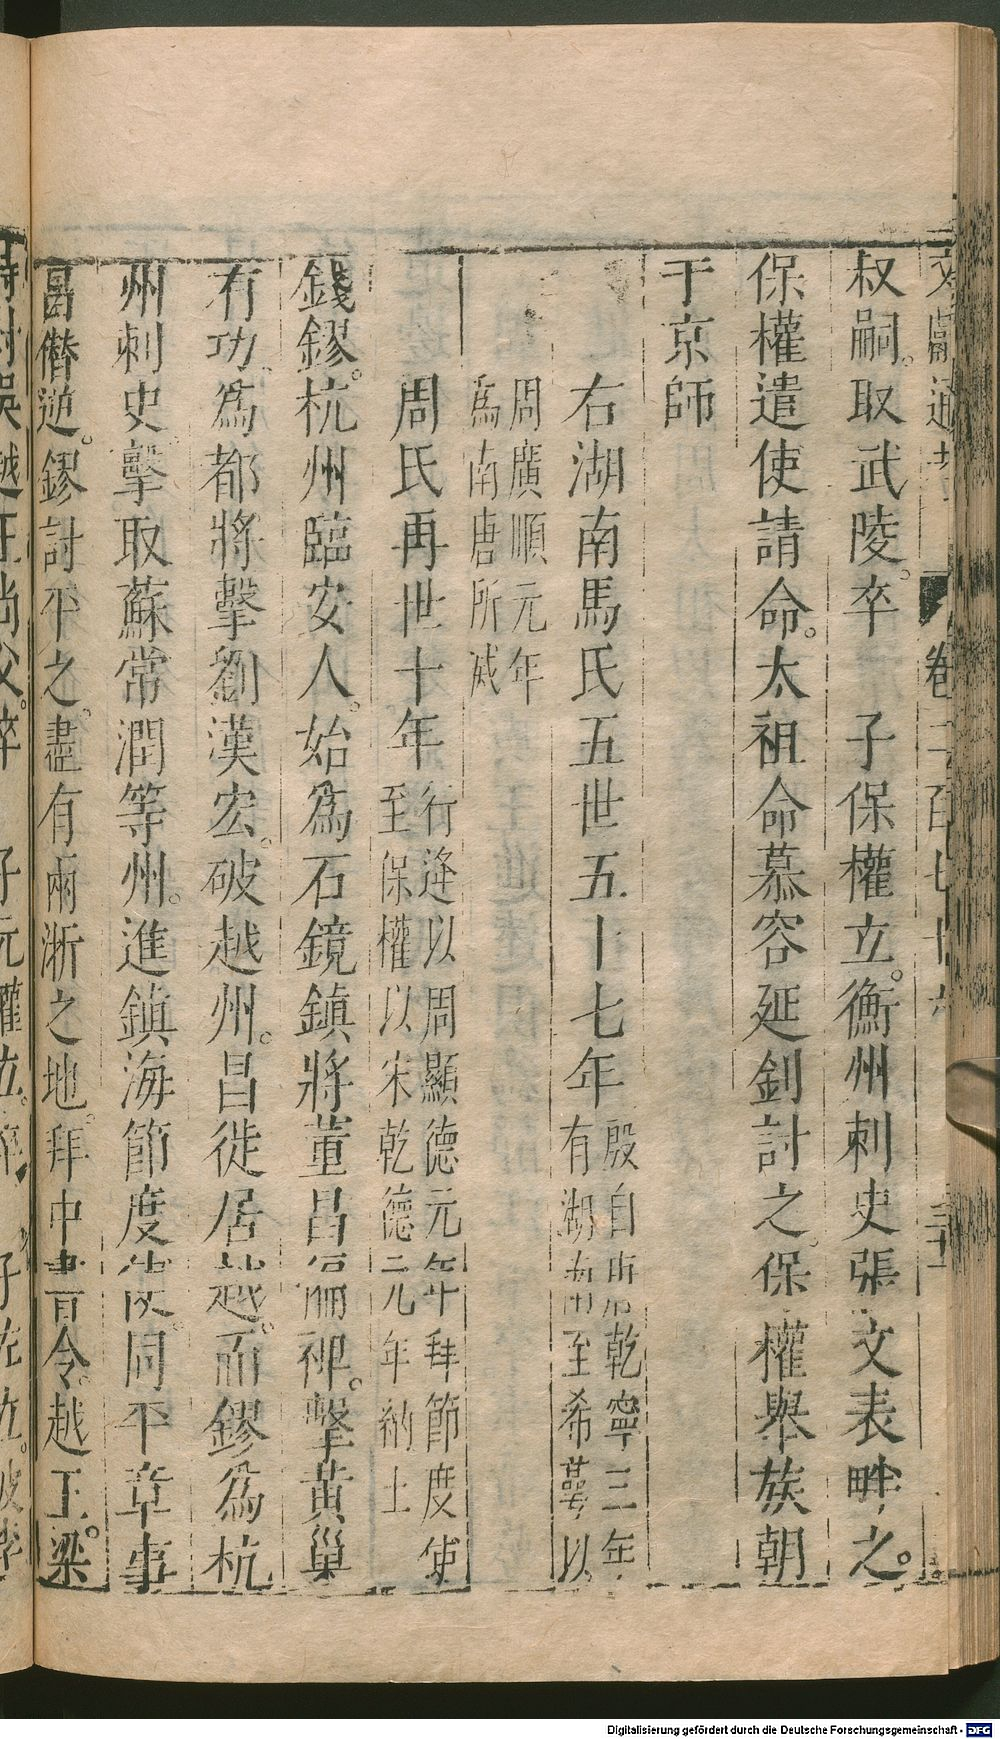 叔嗣。取武陵。卒 子保權立。衡州刺史張文表畔之。
保權遣使請命。太祖命慕容延釗討之。保權舉族朝
于京師
右湖南馬氏五世五十七年 殷自唐乾寧三年
有湖南至希萼以
周廣順元年
為南唐所滅
周氏再世十年 行逄以周顯德元年拜節度使
至保權以宋乾德元年納土
錢鏐。杭州臨安人。始為石鏡鎮將董昌偏裨。擊黃巢
有功。為都將擊劉漢宏。破越州。昌徙居越。而鏐為杭
州刺史。擊取蘇常潤等州。進鎮海節度使。同平章事
昌僭逆。鏐討平之。盡有兩浙之地。拜中書令。越王。梁
Digitalisierung gefördert durch die Deutsche Forschungsgemeinschaft - DFG